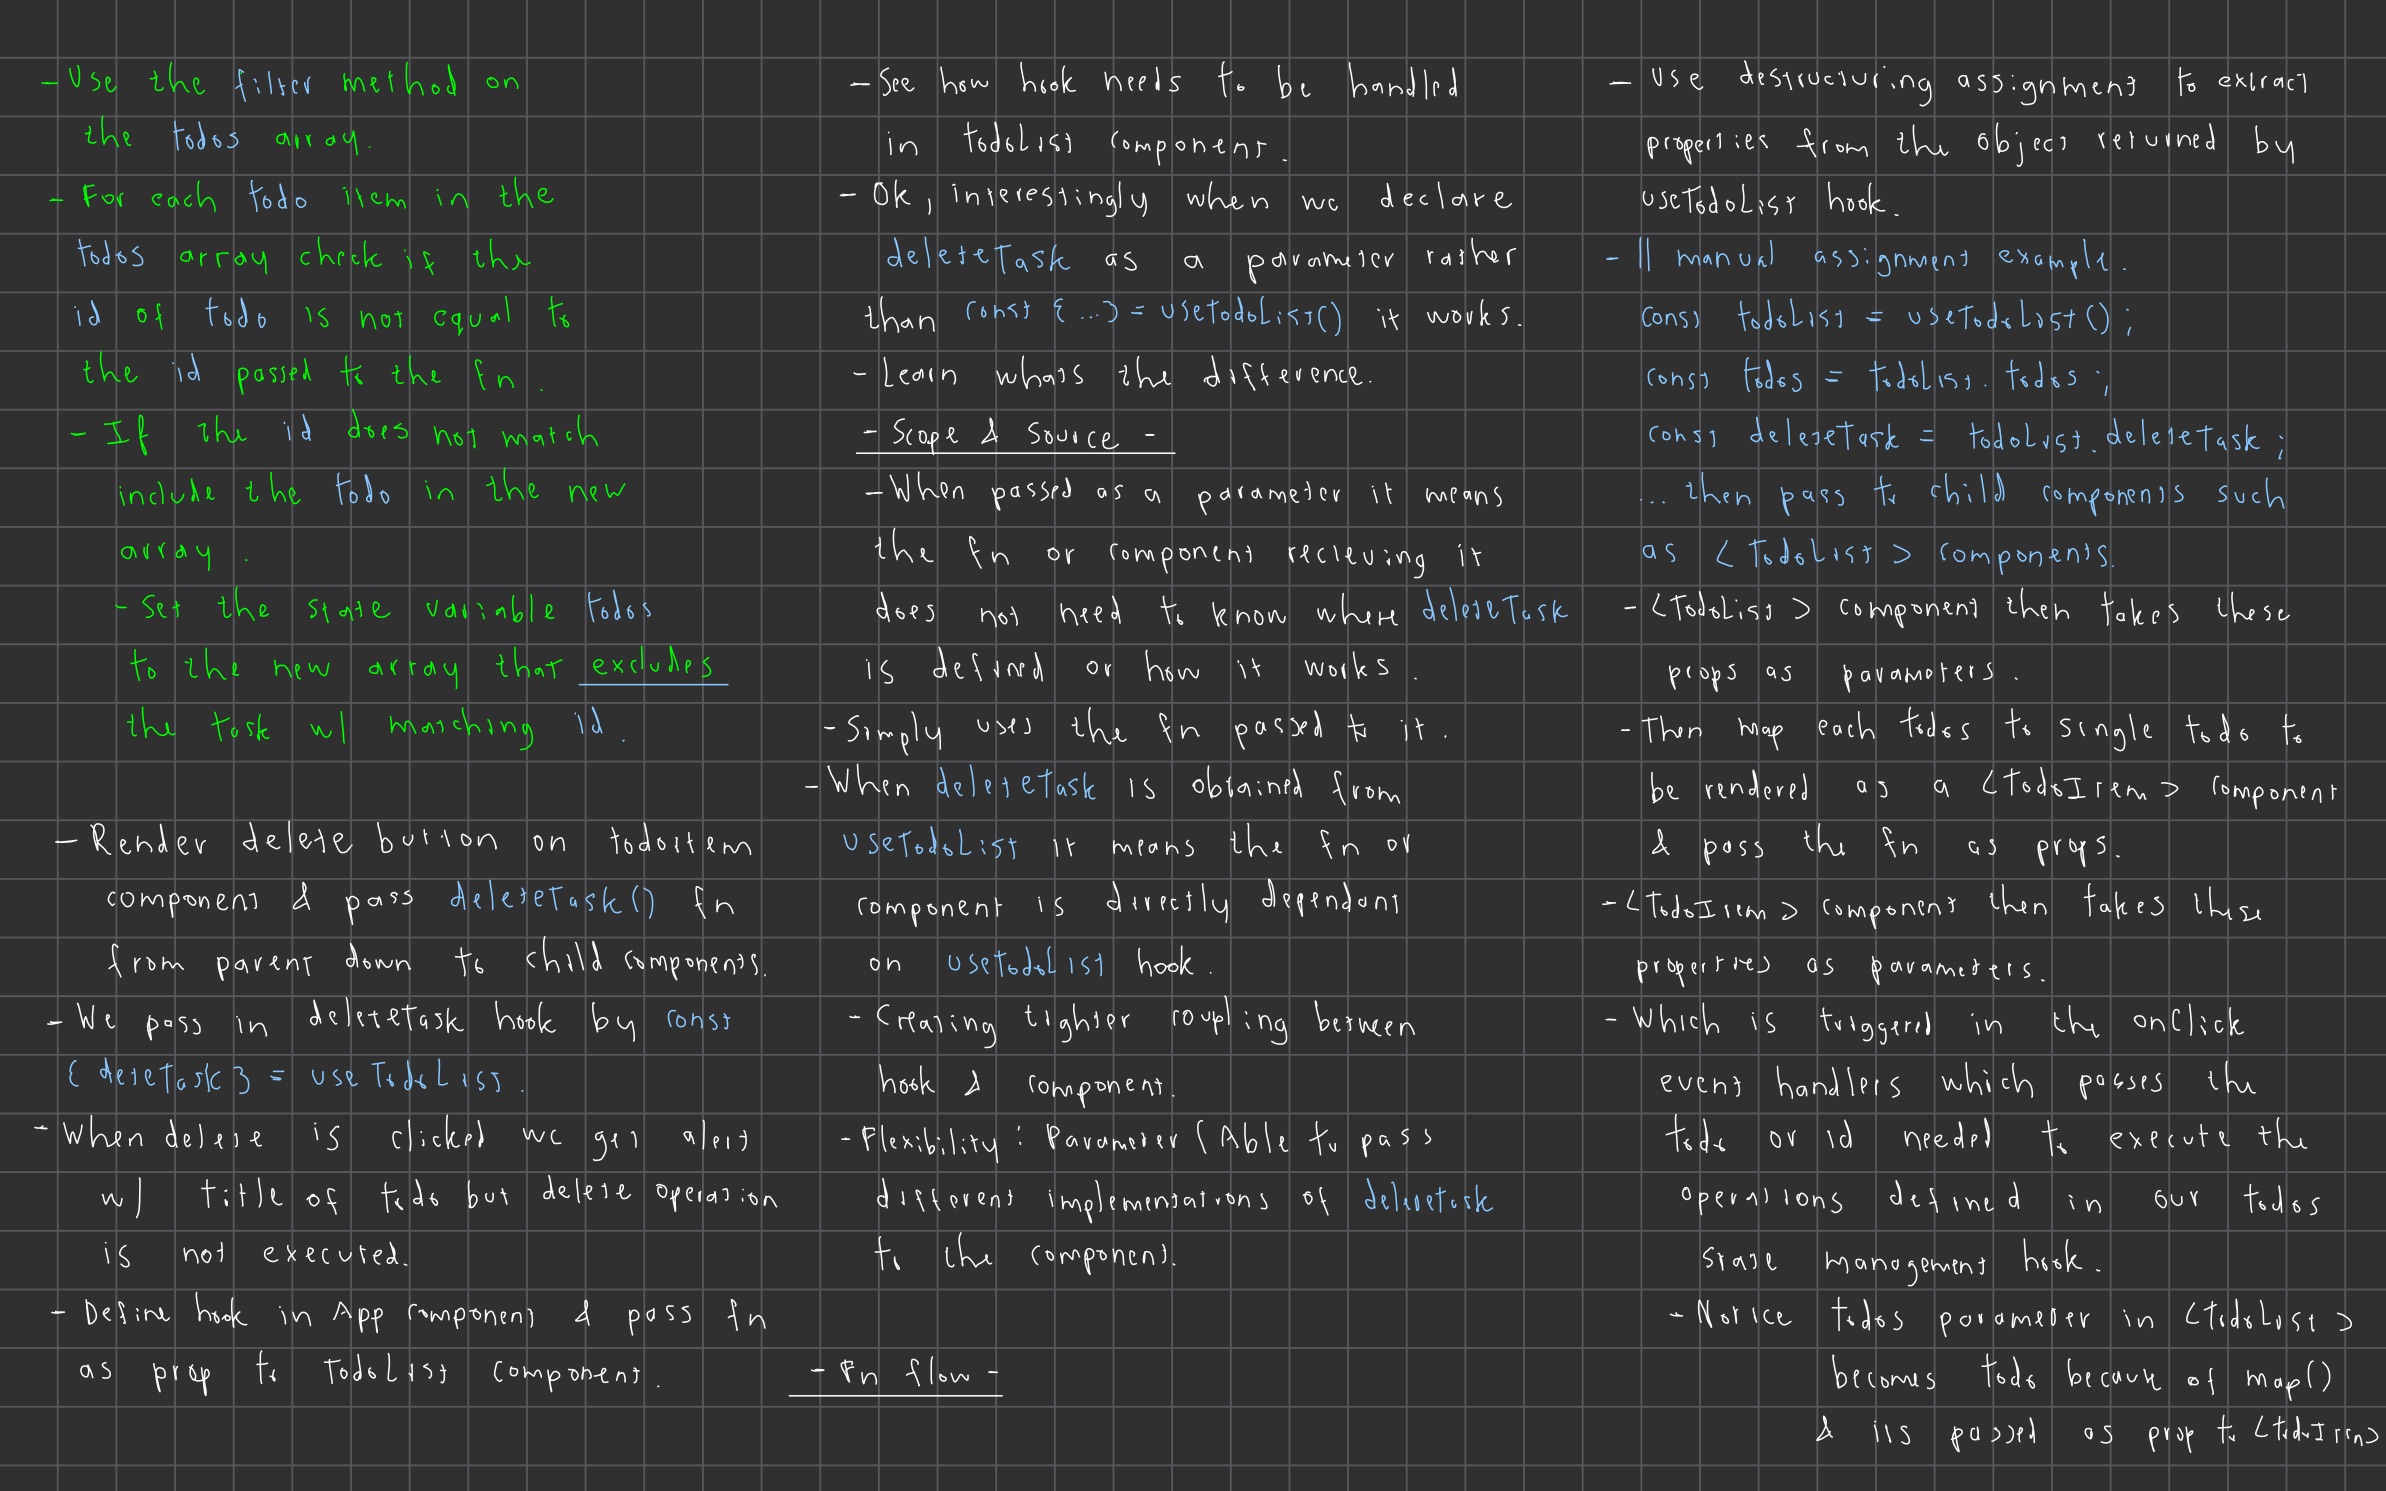 - Use the filter method on
the todos array.
- For each todo item in the
todos array check if the
id of todo is not equal to
the id passed to the fn.
- If the id does not match
include the todo in the new
array.
- Set the state variable todos
to the new array that excludes
the task w/ matching id.
- Render delete button on todoitem
component & pass deleteTask() fn
from parent down to child components.
- We pass in deleteTask hook by const
{ deteTask } = use TodoList.
- When delete is clicked we get alert
w/ title of todo but delete operation
is not executed.
- Define hook in App component & pass fn
as prop to TodoList component.
- See how hook needs to be handled
in todoList component.
- Ok, interestingly when we declare
deleteTask as a parameter rather
than const {...} = useTodoList() it works.
- Learn whats the difference.
- Scope & Source -
- When passed as a parameter it means
the fn or component recieving it
does not need to know where deleteTask
is defined or how it works.
- Simply uses the fn passed to it.
- When deleteTask is obtained from
useTodoList it means the fn or
component is directly dependant
on useTodoList hook.
- Creating tighter coupling between
hook & component.
- Flexibility: Parameter (Able to pass
different implementations of deletetask
to the component.
- Fn flow -
- Use destructuring assignment to extract
properties from the object returned by
useTodoList hook.
- || manual assignment example.
const todoList = useTodoList();
const todos = todoList.todos;
const deleteTask = todoList.deleteTask;
... then pass to child components such
as <TodoList> components.
- <TodoList> component then takes these
props as parameters.
- Then map each todos to single todo to
be rendered as a <TodoItem> component
& pass the fn as props.
- <TodoItem> component then takes these
properties as parameters.
- Which is triggered in the onClick
event handlers which passes the
todo or id needed to execute the
operations defined in our todos
state management hook.
- Notice todos parameter in <TodoList>
becomes todo because of map()
& its passed as prop to <TodoItem>